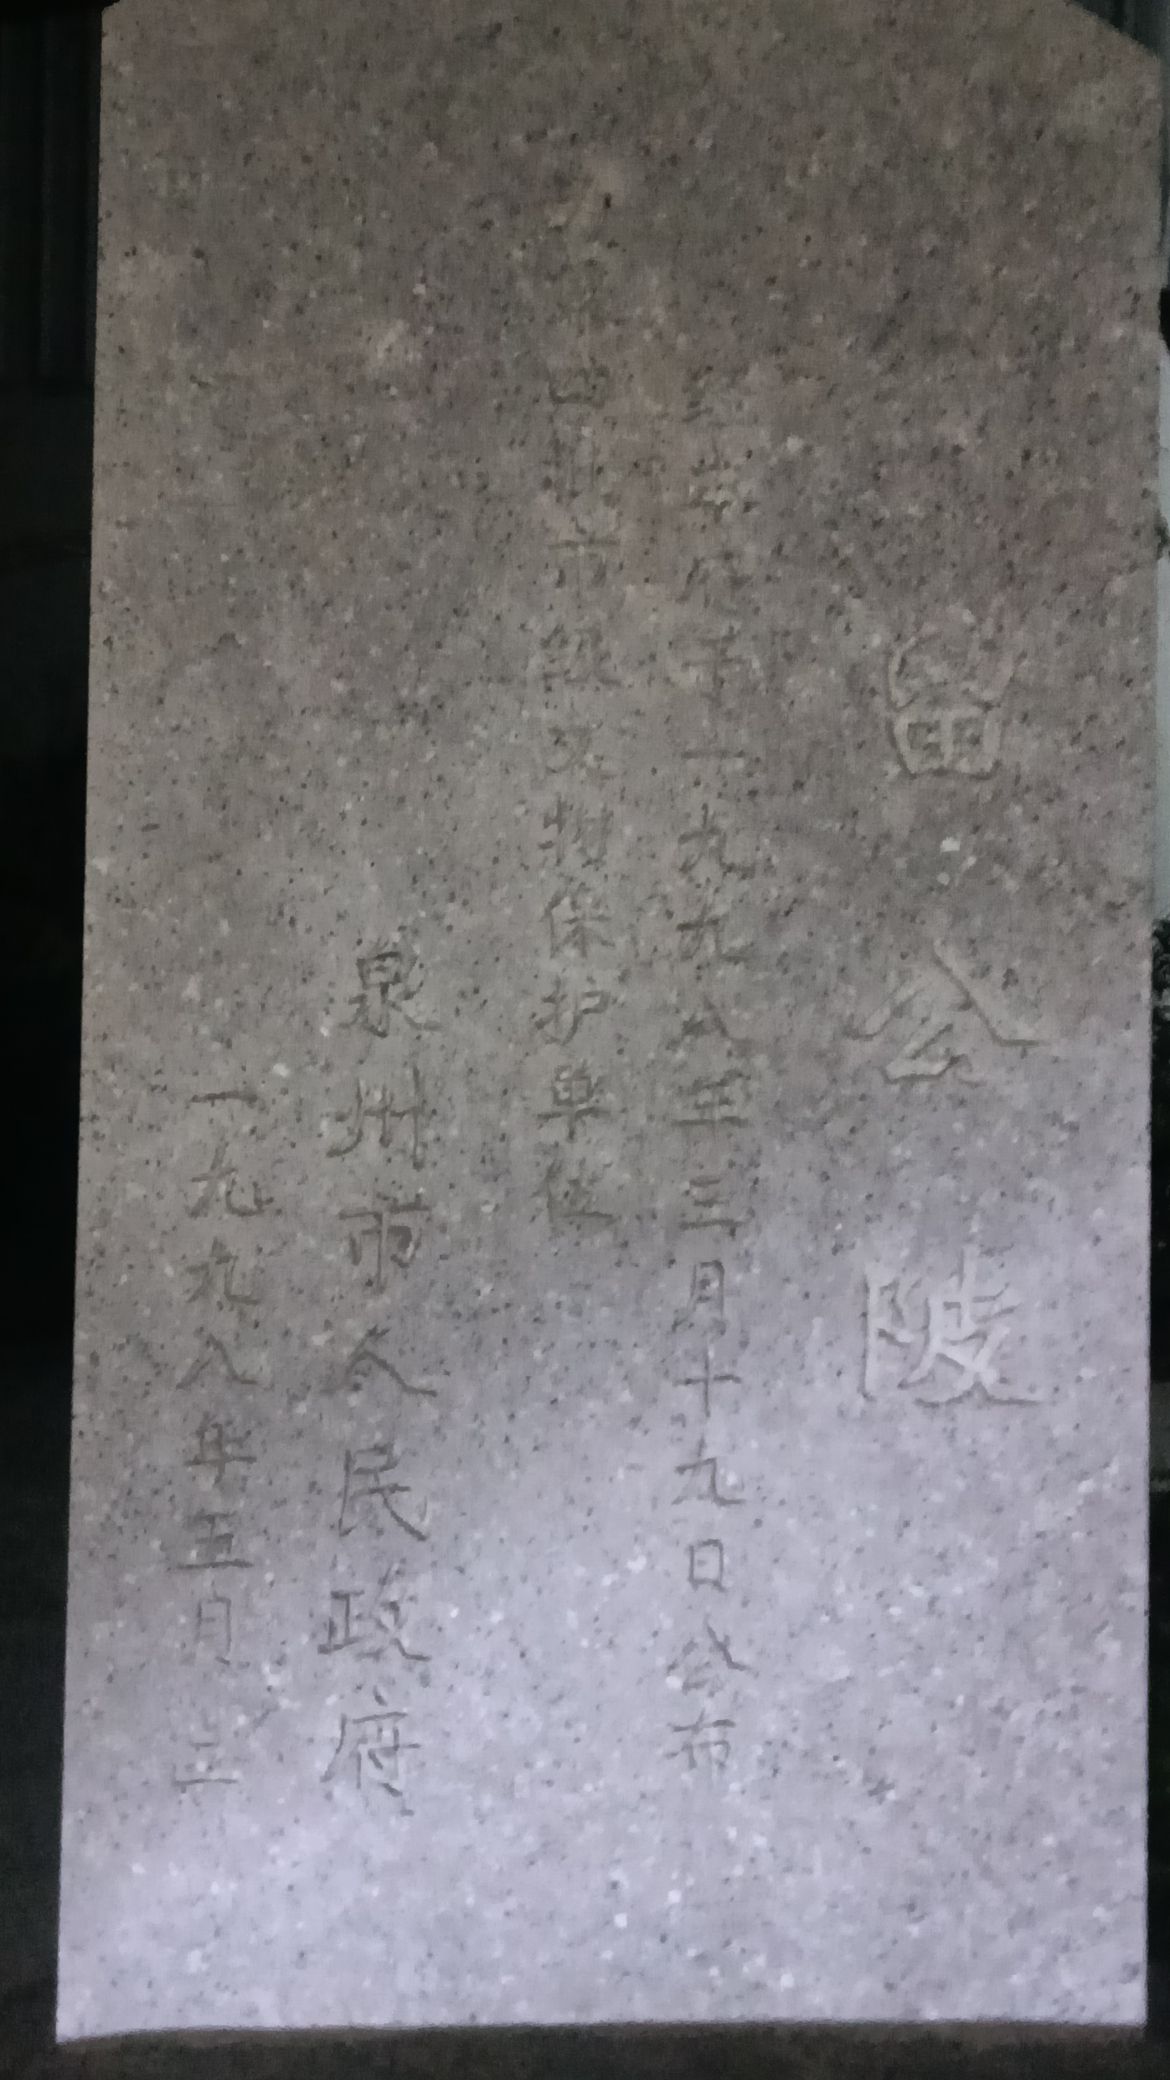 留公陂
经本府于一九九八年三月十九日公布
为第四批市级文物保护单位
泉州市人民政府
一九九八年五月 立